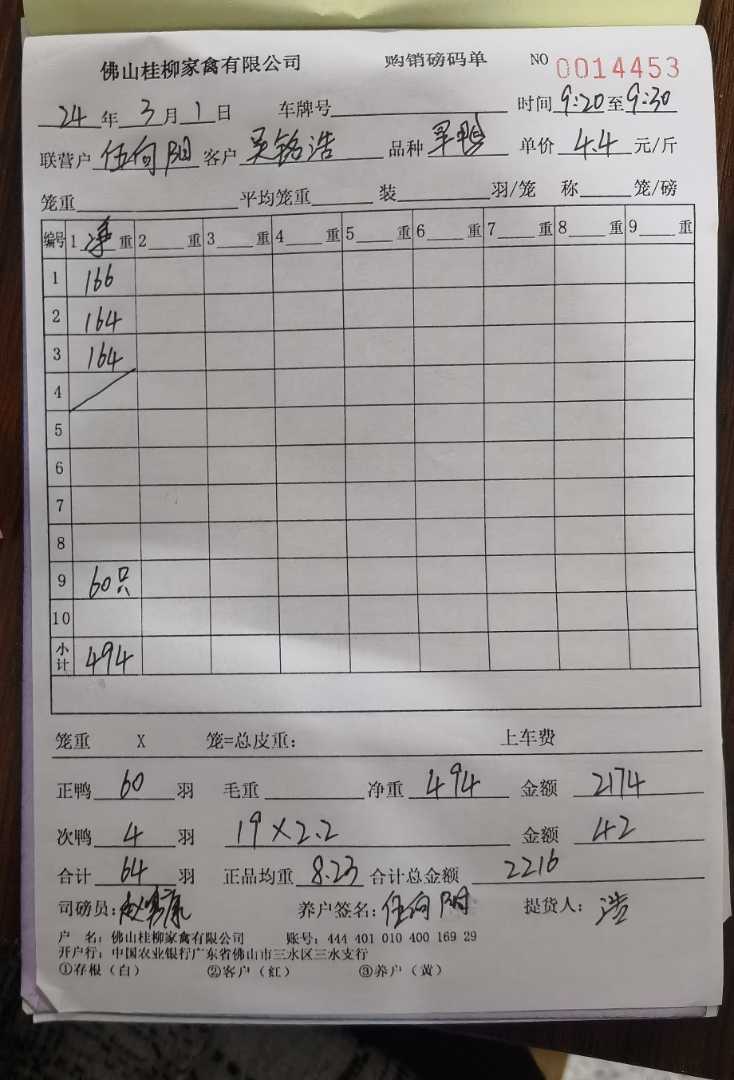 佛山桂柳家禽有限公司 购销磅码单 NO 0014453
24 年 3 月 1 日 车牌号 时间 9:20 至 9:30
联营户 伍向阳 客户 吴铭浩 品种 单价 4.4 元/斤
笼重 平均笼重 装 羽/笼 称 笼/磅
编号 1 净 重 2 重 3 重 4 重 5 重 6 重 7 重 8 重 9 重
1 166
2 164
3 164
4
5
6
7
8
9 60只
10
小计 494
笼重 X 笼=总皮重: 上车费
正鸭 60 羽 毛重 净重 494 金额 2174
次鸭 4 羽 19×2.2 金额 42
合计 64 羽 正品均重 8.23 合计总金额 2216
司磅员: 养户签名: 伍向阳 提货人: 浩
户 名: 佛山桂柳家禽有限公司 账号: 444 401 010 400 169 29
开户行: 中国农业银行广东省佛山市三水区三水支行
①存根（白） ②客户（红） ③养户（黄）